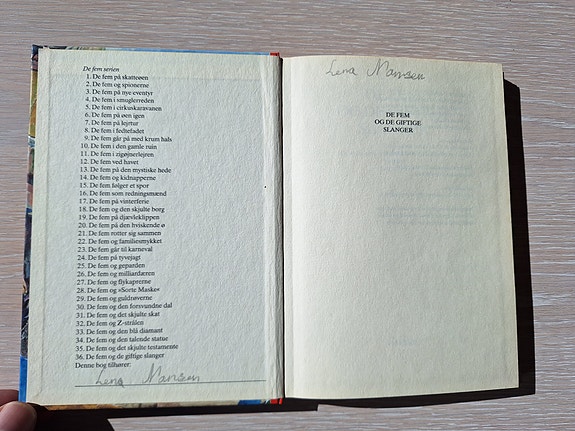 De fem serien
1. De fem på skatteøen
2. De fem og spionerne
3. De fem på nye eventyr
4. De fem i smuglerreden
5. De fem i cirkuskaravanen
6. De fem på øen igen
7. De fem på lejrtur
8. De fem i fedtefadet
9. De fem går på med krum hals
10. De fem i den gamle ruin
11. De fem i zigøjnerlejren
12. De fem ved havet
13. De fem på den mystiske hede
14. De fem og kidnapperne
15. De fem følger et spor
16. De fem som redningsmænd
17. De fem på vinterferie
18. De fem og den skjulte borg
19. De fem på djævleklippen
20. De fem på den hviskende ø
21. De fem rotter sig sammen
22. De fem og familiesmykket
23. De fem går til karneval
24. De fem på tyvejagt
25. De fem og geparden
26. De fem og milliardæren
27. De fem og flykaprerne
28. De fem og »Sorte Maske«
29. De fem og guldrøverne
30. De fem og den forsvundne dal
31. De fem og det skjulte skat
32. De fem og Z-strålen
33. De fem og den blå diamant
34. De fem og den talende statue
35. De fem og det skjulte testamente
36. De fem og de giftige slanger
Denne bog tilhører:
Lena Mamsen
Lena Mamsen
DE FEM
OG DE GIFTIGE
SLANGER